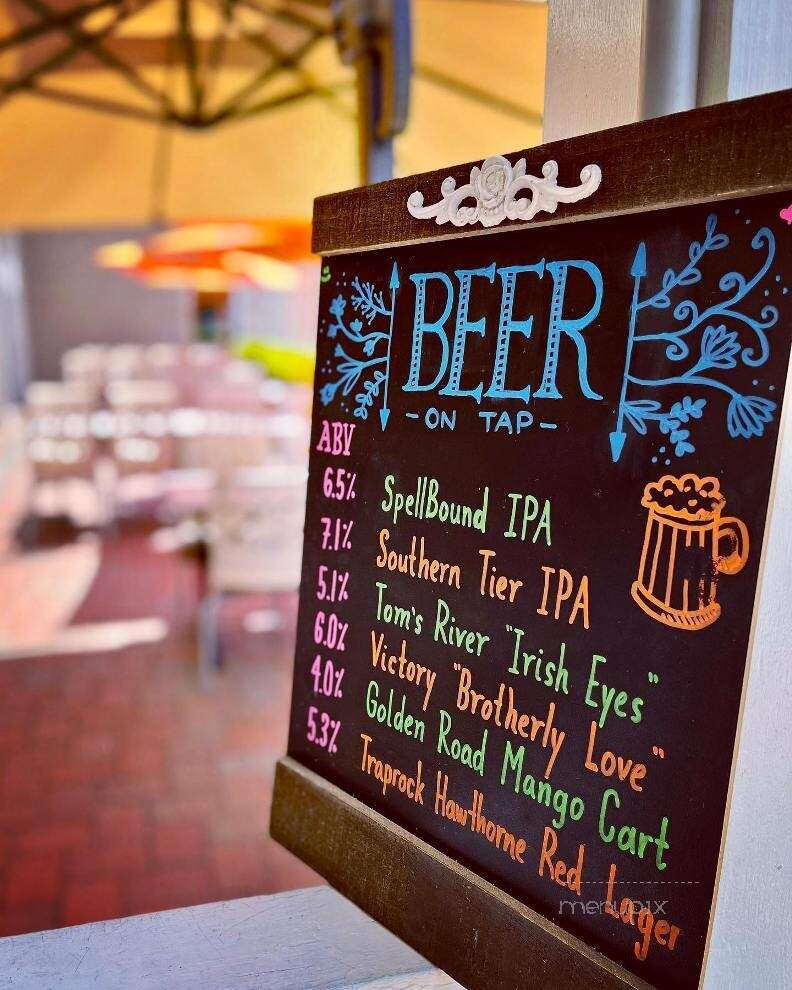 BEER
- ON TAP -
ABV
6.5% SpellBound IPA
7.1% Southern Tier IPA
5.1% Tom's River "Irish Eyes"
6.0% Victory "Brotherly Love"
4.0% Golden Road Mango Cart
5.3% Traprock Hawthorne Red Lager
menupix